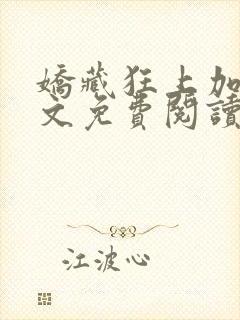 嬌藏狂上加
文免費閱讀
江波心